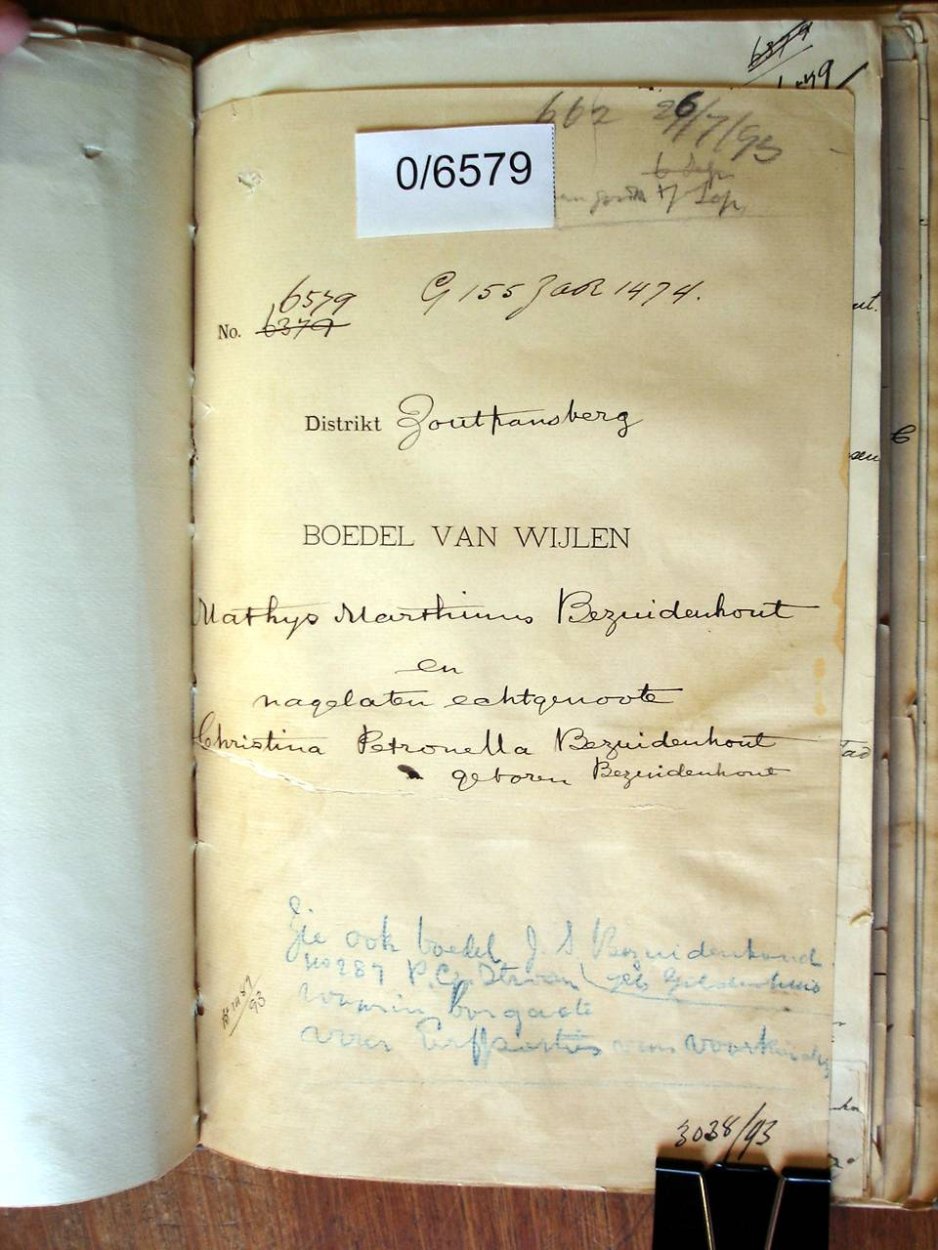 6379
662 26/7/93
0/6579
6 Sep
7 Sep
6579 G 155 Jaar 1474.
No. 6379
Distrikt Zoutpansberg
BOEDEL VAN WIJLEN
Mathys Marthinus Bezuidenhout
en
nagelaten echtgenoote
Christina Petronella Bezuidenhout
geboren Bezuidenhout
Zie ook boedel J. S. Bezuidenhoud
No 287 P.C. geb Geldenhuis
waarin borgacte
voor Erfporties van voorkinders
3038/93